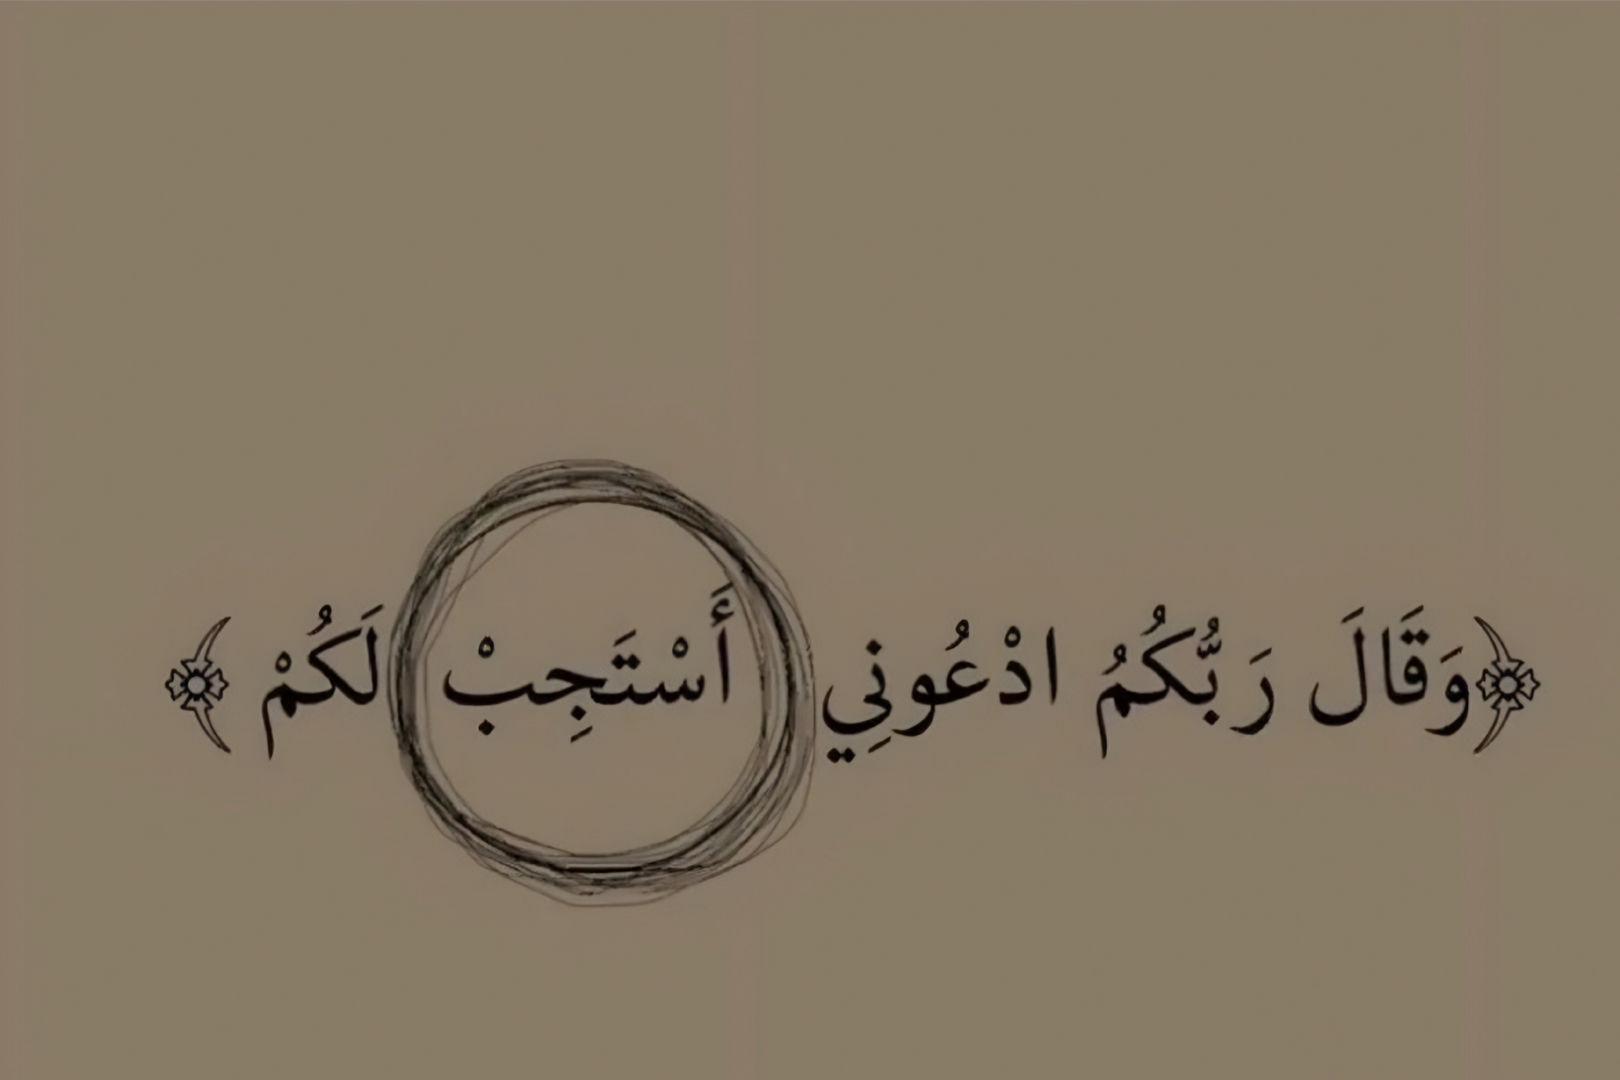 ﴿وَقَالَ رَبُّكُمُ ادْعُونِي أَسْتَجِبْ لَكُمْ ﴾